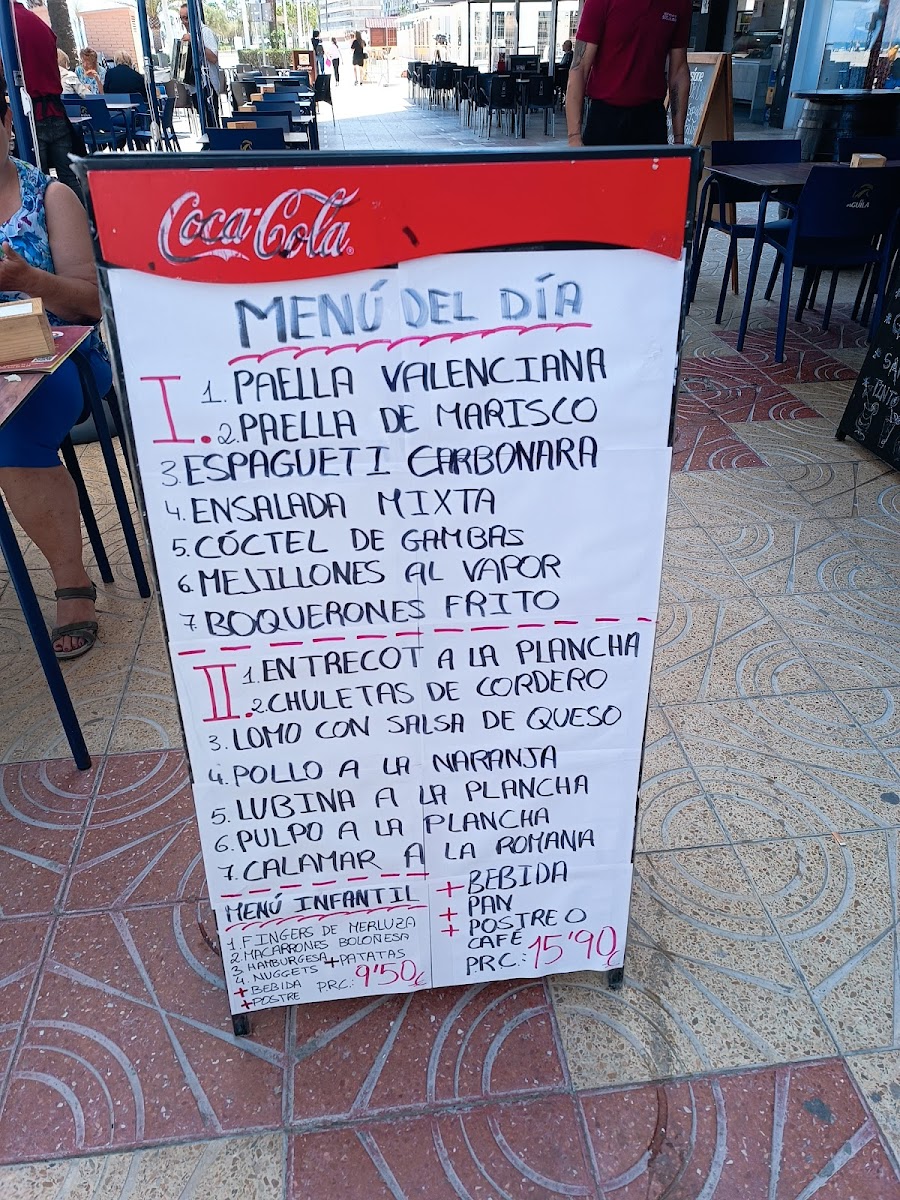 Coca-Cola
MENÚ DEL DÍA
I. 1. PAELLA VALENCIANA
2. PAELLA DE MARISCO
3. ESPAGUETI CARBONARA
4. ENSALADA MIXTA
5. CÓCTEL DE GAMBAS
6. MEJILLONES AL VAPOR
7. BOQUERONES FRITO
II. 1. ENTRECOT A LA PLANCHA
2. CHULETAS DE CORDERO
3. LOMO CON SALSA DE QUESO
4. POLLO A LA NARANJA
5. LUBINA A LA PLANCHA
6. PULPO A LA PLANCHA
7. CALAMAR A LA ROMANA
MENÚ INFANTIL
1. FINGERS DE MERLUZA
2. MACARRONES BOLOÑESA
3. HAMBURGESA + PATATAS
4. NUGGETS
+ BEBIDA
+ POSTRE
PRC.: 9'50€
+ BEBIDA
+ PAN
+ POSTRE O
CAFE
PRC.: 15'90€
AGUILA